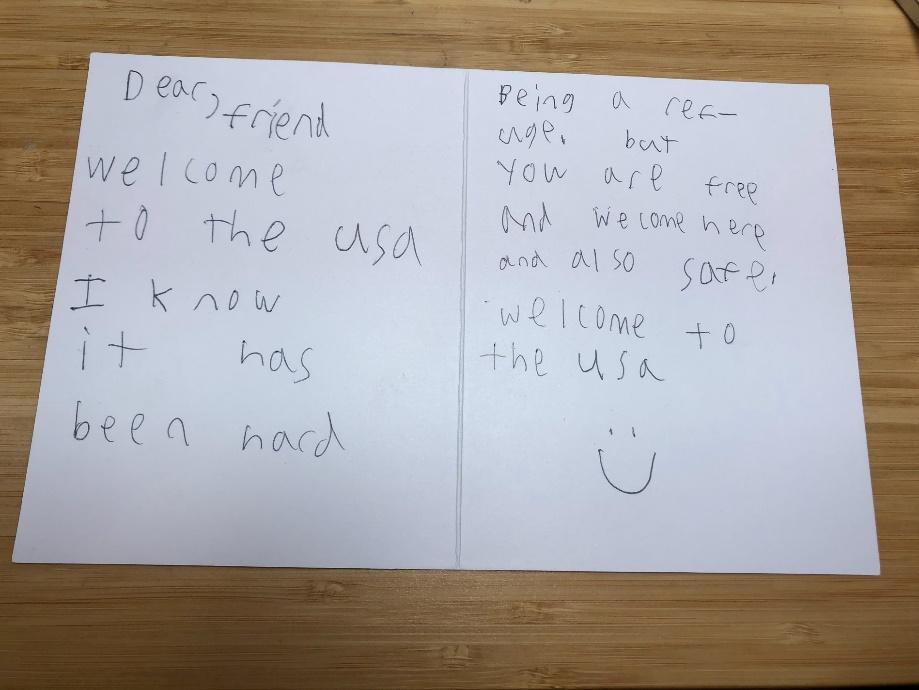 Dear, friend
welcome
to the usa
I know
it has
been hard
Being a ref-
uge. but
you are free
and welcome here
and also safe.
welcome to
the usa